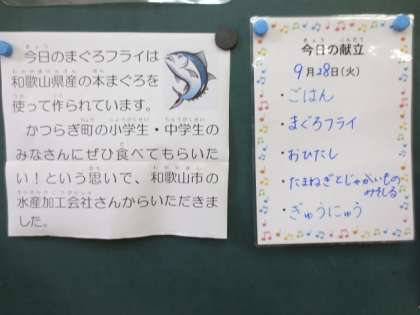 今日のまぐろフライは
和歌山県産の本まぐろを
使って作られています。
かつらぎ町の小学生・中学生の
みなさんにぜひ食べてもらいた
い！という思いで、和歌山市の
水産加工会社さんからいただきま
した。
今日の献立
9月28日(火)
・ごはん
・まぐろフライ
・おひたし
・たまねぎとじゃがいもの
みそしる
・ぎゅうにゅう